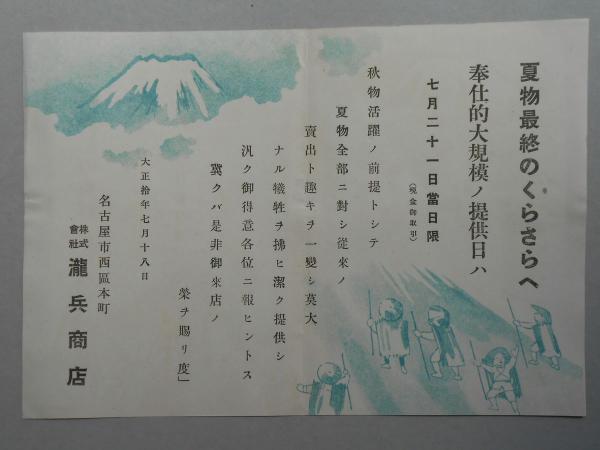 夏物最終のくらさらへ
奉仕的大規模ノ提供日ハ
七月二十一日當日限
(現金御取引)
秋物活躍ノ前提トシテ
夏物全部ニ對シ從來ノ
賣出ト趣キヲ一變シ莫大
ナル犧牲ヲ拂ヒ潔ク提供シ
汎ク御得意各位ニ報ヒントス
冀クバ是非御來店ノ
榮ヲ賜リ度」
大正拾年七月十八日
名古屋市西區本町
株式會社 瀧兵商店